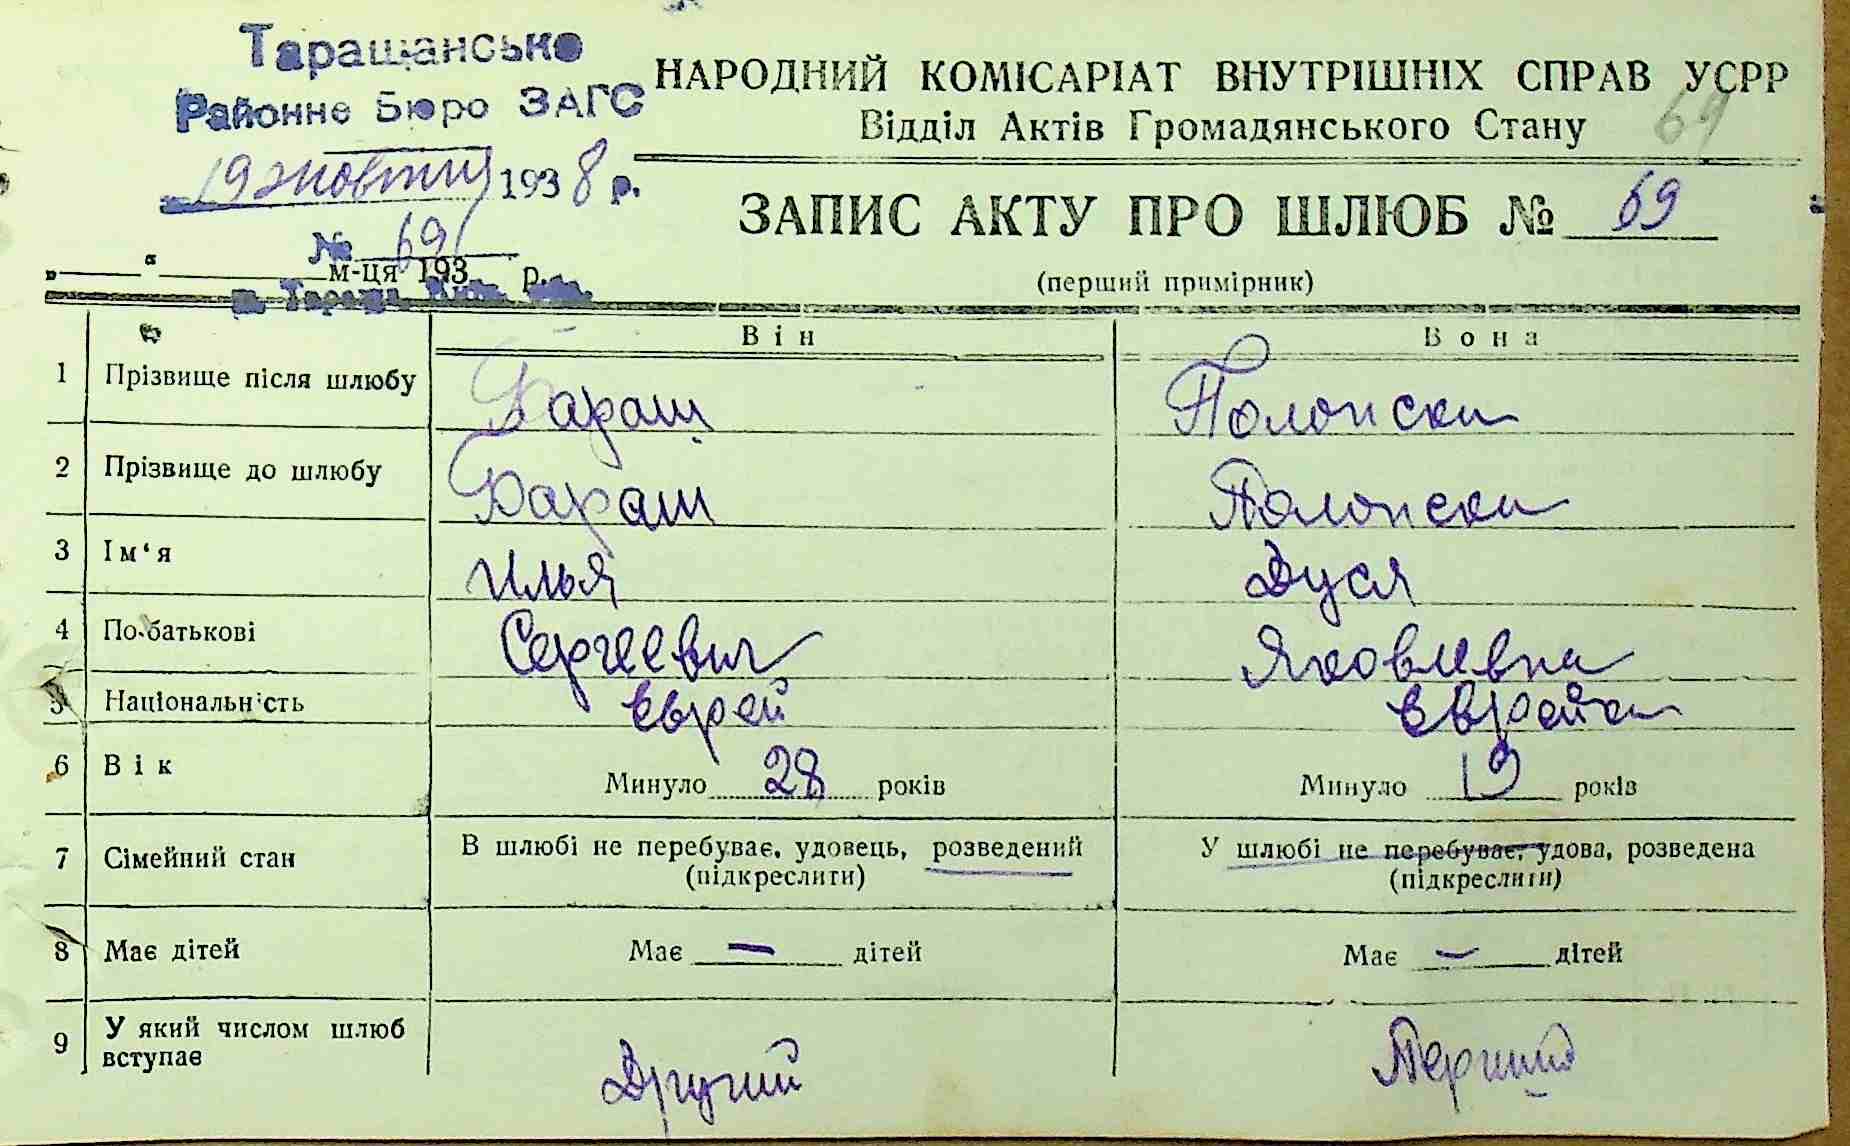 Таращанське
Районне Бюро ЗАГС
19 жовтня 1938 р.
№ 69
„ “ м-ця 193 р.
м. Тараща
НАРОДНИЙ КОМІСАРІАТ ВНУТРІШНІХ СПРАВ УСРР
Відділ Актів Громадянського Стану
69
ЗАПИС АКТУ ПРО ШЛЮБ № 69
(перший примірник)
Він Вона
1 Прізвище після шлюбу Бараш Полонска
2 Прізвище до шлюбу Бараш Полонска
3 Ім‘я Илья Дуся
4 По-батькові Сергеевич Яковлевна
5 Національність Еврей Еврейка
6 Вік Минуло 28 років Минуло 19 років
7 Сімейний стан В шлюбі не перебуває, удовець, розведений У шлюбі не перебуває, удова, розведена
(підкреслити) (підкреслити)
8 Має дітей Має — дітей Має — дітей
9 У який числом шлюб вступає Другий Перший